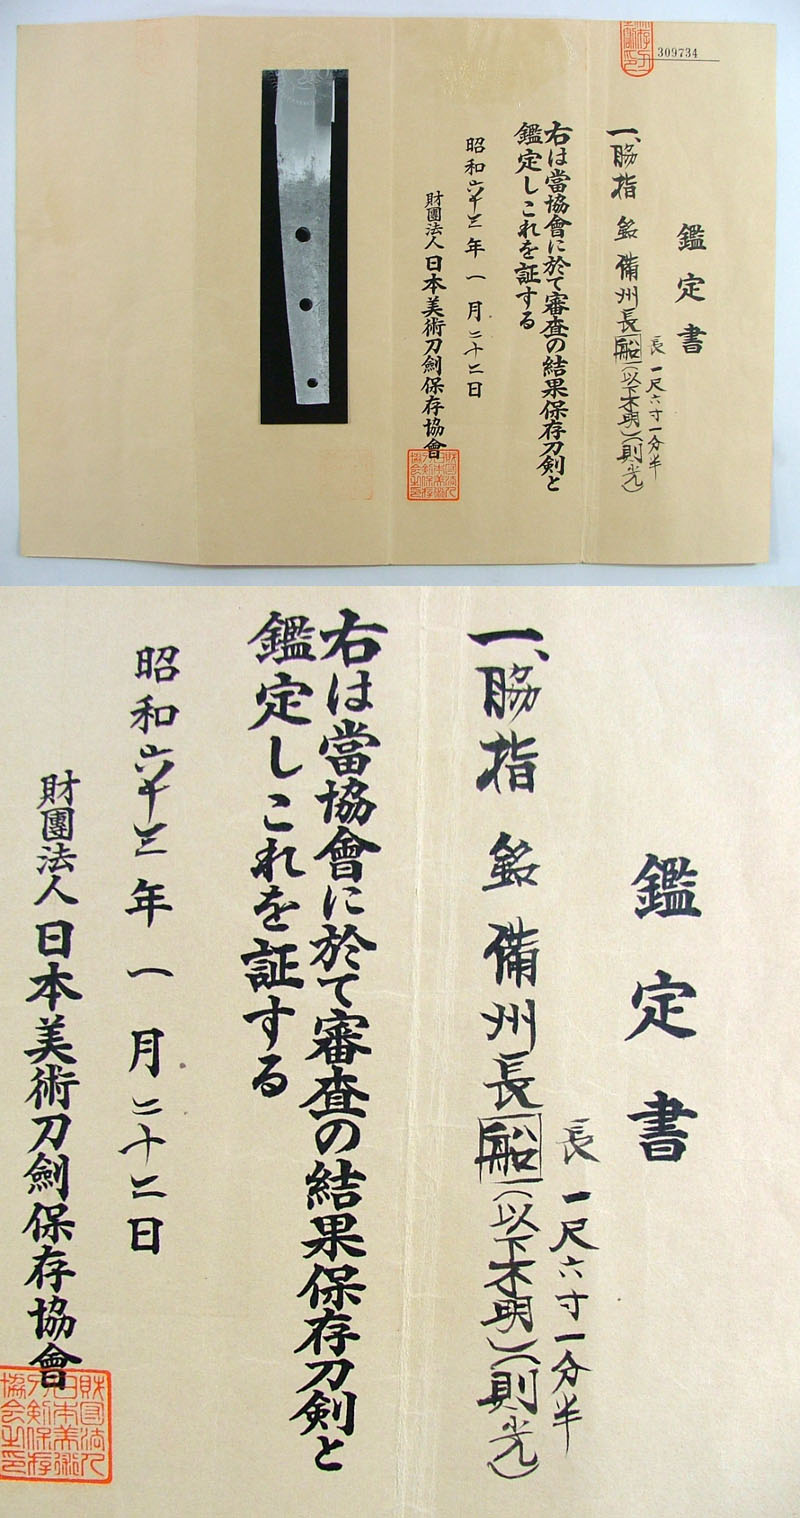 309734
鑑定書
一、脇指 銘 備州長船(以下不明)(則光)
長 一尺六寸一分半
右は當協會に於て審査の結果保存刀剣と
鑑定しこれを証する
昭和六十三年一月二十二日
財團法人日本美術刀劍保存協會
財団法人日本美術刀剣保存協会之印
鑑定書
一、脇指 銘 備州長船(以下不明)(則光)
長 一尺六寸一分半
右は當協會に於て審査の結果保存刀剣と
鑑定しこれを証する
昭和六十三年一月二十二日
財團法人日本美術刀劍保存協會
財団法人日本美術刀剣保存協会之印